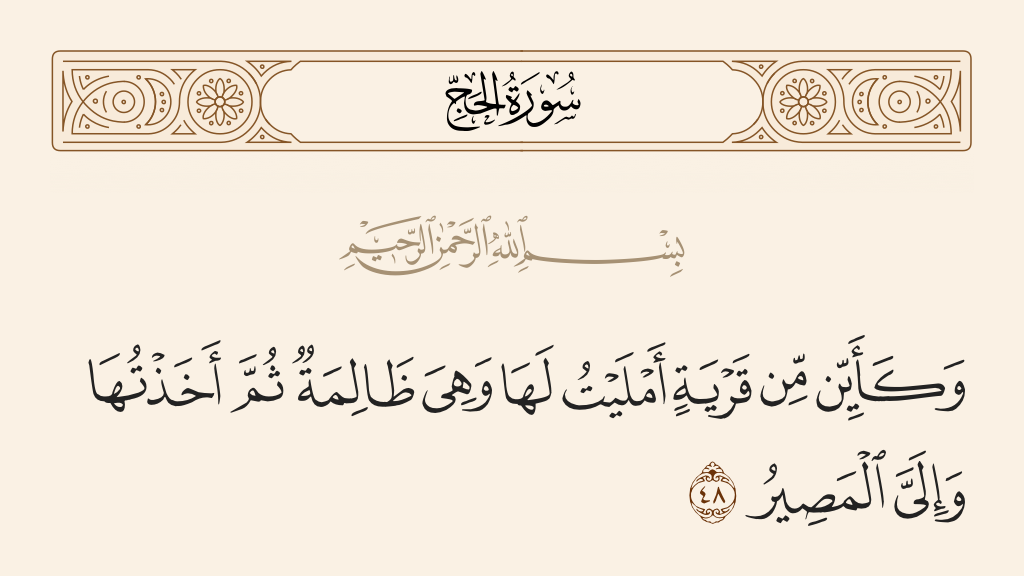 سُورَةُ الْحَجِّ
بِسْمِ ٱللَّهِ ٱلرَّحْمَٰنِ ٱلرَّحِيمِ
وَكَأَيِّن مِّن قَرْيَةٍ أَمْلَيْتُ لَهَا وَهِىَ ظَالِمَةٌ ثُمَّ أَخَذْتُهَا
وَإِلَىَّ ٱلْمَصِيرُ ٤٨